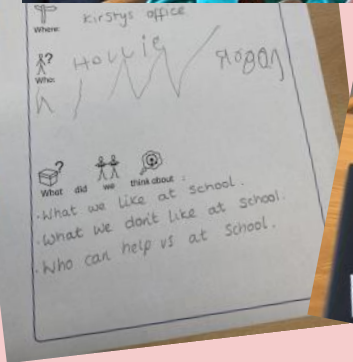 Where: Kirstys office
Who: HOLLIE
What did we think about :
·What we like at school.
·What we don't like at school.
·Who can help us at school.